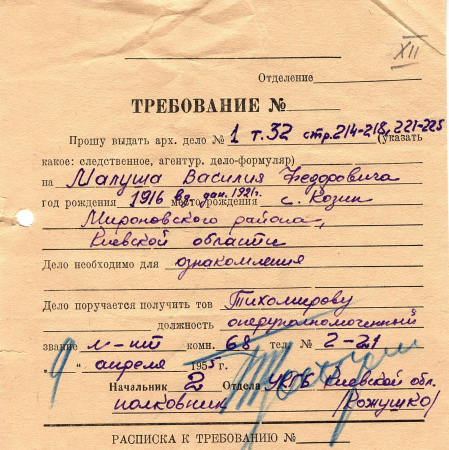 XII
Отделение
ТРЕБОВАНИЕ №
Прошу выдать арх. дело № 1 т.32 стр. 214-218, 221-225 (указать
какое: следственное, агентур. дело-формуляр)
на Малуша Василия Федоровича
год рождения 1916 в др. дан. 1921г. место рождения с. Козин
Мироновского района,
Киевской области
Дело необходимо для ознакомления
Дело поручается получить тов Тихомирову
должность оперуполномоченный
звание л-нт комн. 68 тел. № 2-21
" 9 " апреля 1955 г.
Начальник 2 Отдела УКГБ Киевской обл.
полковник /Кожушко/
РАСПИСКА К ТРЕБОВАНИЮ №